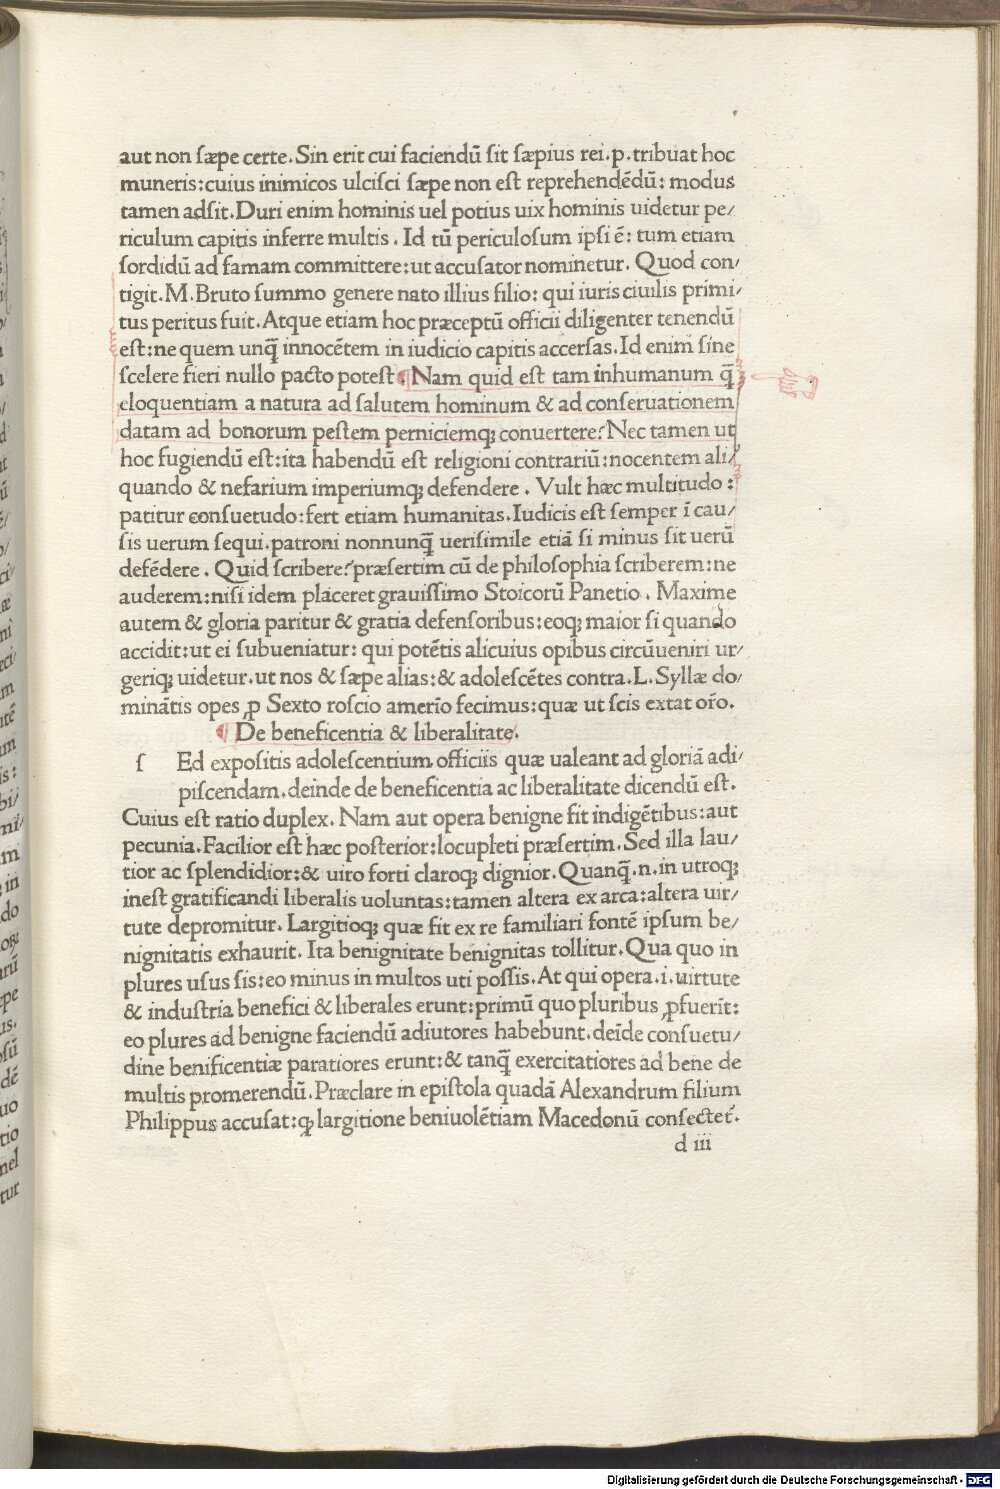 aut non sæpe certe. Sin erit cui faciendū sit sæpius rei.p.tribuat hoc
muneris:cuius inimicos ulcisci sæpe non est reprehendēdū: modus
tamen adsit.Duri enim hominis uel potius uix hominis uidetur pe/
riculum capitis inferre multis. Id tū periculosum ipsi ē: tum etiam
sordidū ad famam committere:ut accusator nominetur. Quod con/
tigit.M.Bruto summo genere nato illius filio: qui iuris ciuilis primi/
tus peritus fuit.Atque etiam hoc præceptū officii diligenter tenendū
est:ne quem unq̄ innocētem in iudicio capitis accersas.Id enim sine
scelere fieri nullo pacto potest. ¶ Nam quid est tam inhumanum q̄
eloquentiam a natura ad salutem hominum & ad conseruationem
datam ad bonorum pestem perniciemq; conuertere? Nec tamen ut
hoc fugiendū est:ita habendū est religioni contrariū:nocentem ali/
quando & nefarium imperiumq; defendere. Vult hæc multitudo:
patitur consuetudo:fert etiam humanitas.Iudicis est semper ī cau/
sis uerum sequi.patroni nonnunq̄ uerisimile etiā si minus sit uerū
defēdere. Quid scribere? præsertim cū de philosophia scriberem:ne
auderem:nisi idem placeret grauissimo Stoicorū Panetio. Maxime
autem & gloria paritur & gratia defensoribus:eoq; maior si quando
accidit:ut ei subueniatur: qui potētis alicuius opibus circūueniri ur/
geriq; uidetur.ut nos & sæpe alias:& adolescētes contra.L.Syllæ do/
minātis opes ꝓ Sexto roscio amerīo fecimus:quæ ut scis extat orō.
¶ De beneficentia & liberalitate.
ſ Ed expositis adolescentium officiis quæ ualeant ad gloriā adi/
piscendam.deinde de beneficentia ac liberalitate dicendū est.
Cuius est ratio duplex. Nam aut opera benigne fit indigētibus:aut
pecunia.Facilior est hæc posterior:locupleti præsertim.Sed illa lau/
tior ac splendidior:& uiro forti claroq; dignior.Quanq̄.n.in utroq;
inest gratificandi liberalis uoluntas:tamen altera ex arca:altera uir/
tute depromitur. Largitioq; quæ fit ex re familiari fontē ipsum be/
nignitatis exhaurit. Ita benignitate benignitas tollitur.Qua quo in
plures usus sis:eo minus in multos uti possis.At qui opera.i.uirtute
& industria benefici & liberales erunt:primū quo pluribus ꝓfuerīt:
eo plures ad benigne faciendū adiutores habebunt.deīde consuetu/
dine benificentiæ paratiores erunt:& tanq̄ exercitatiores ad bene de
multis promerendū.Præclare in epistola quadā Alexandrum filium
Philippus accusat:ꝙ largitione beniuolētiam Macedonū consectet᷑.
d iii
Digitalisierung gefördert durch die Deutsche Forschungsgemeinschaft - DFG